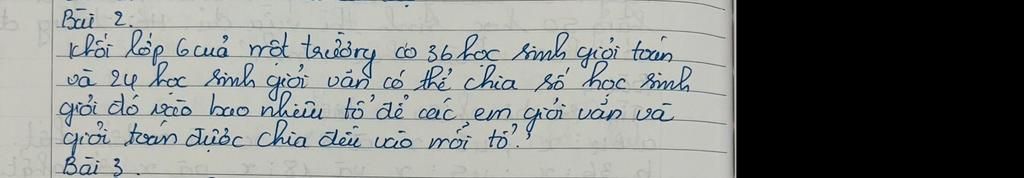 Bài 2.
Khối lớp 6 cuả một trường có 36 học sinh giỏi toán
và 24 học sinh giỏi văn có thể chia số học sinh
giỏi đó vào bao nhiêu tổ để các em giỏi văn và
giỏi toán được chia đều vào mỗi tổ?
Bài 3.